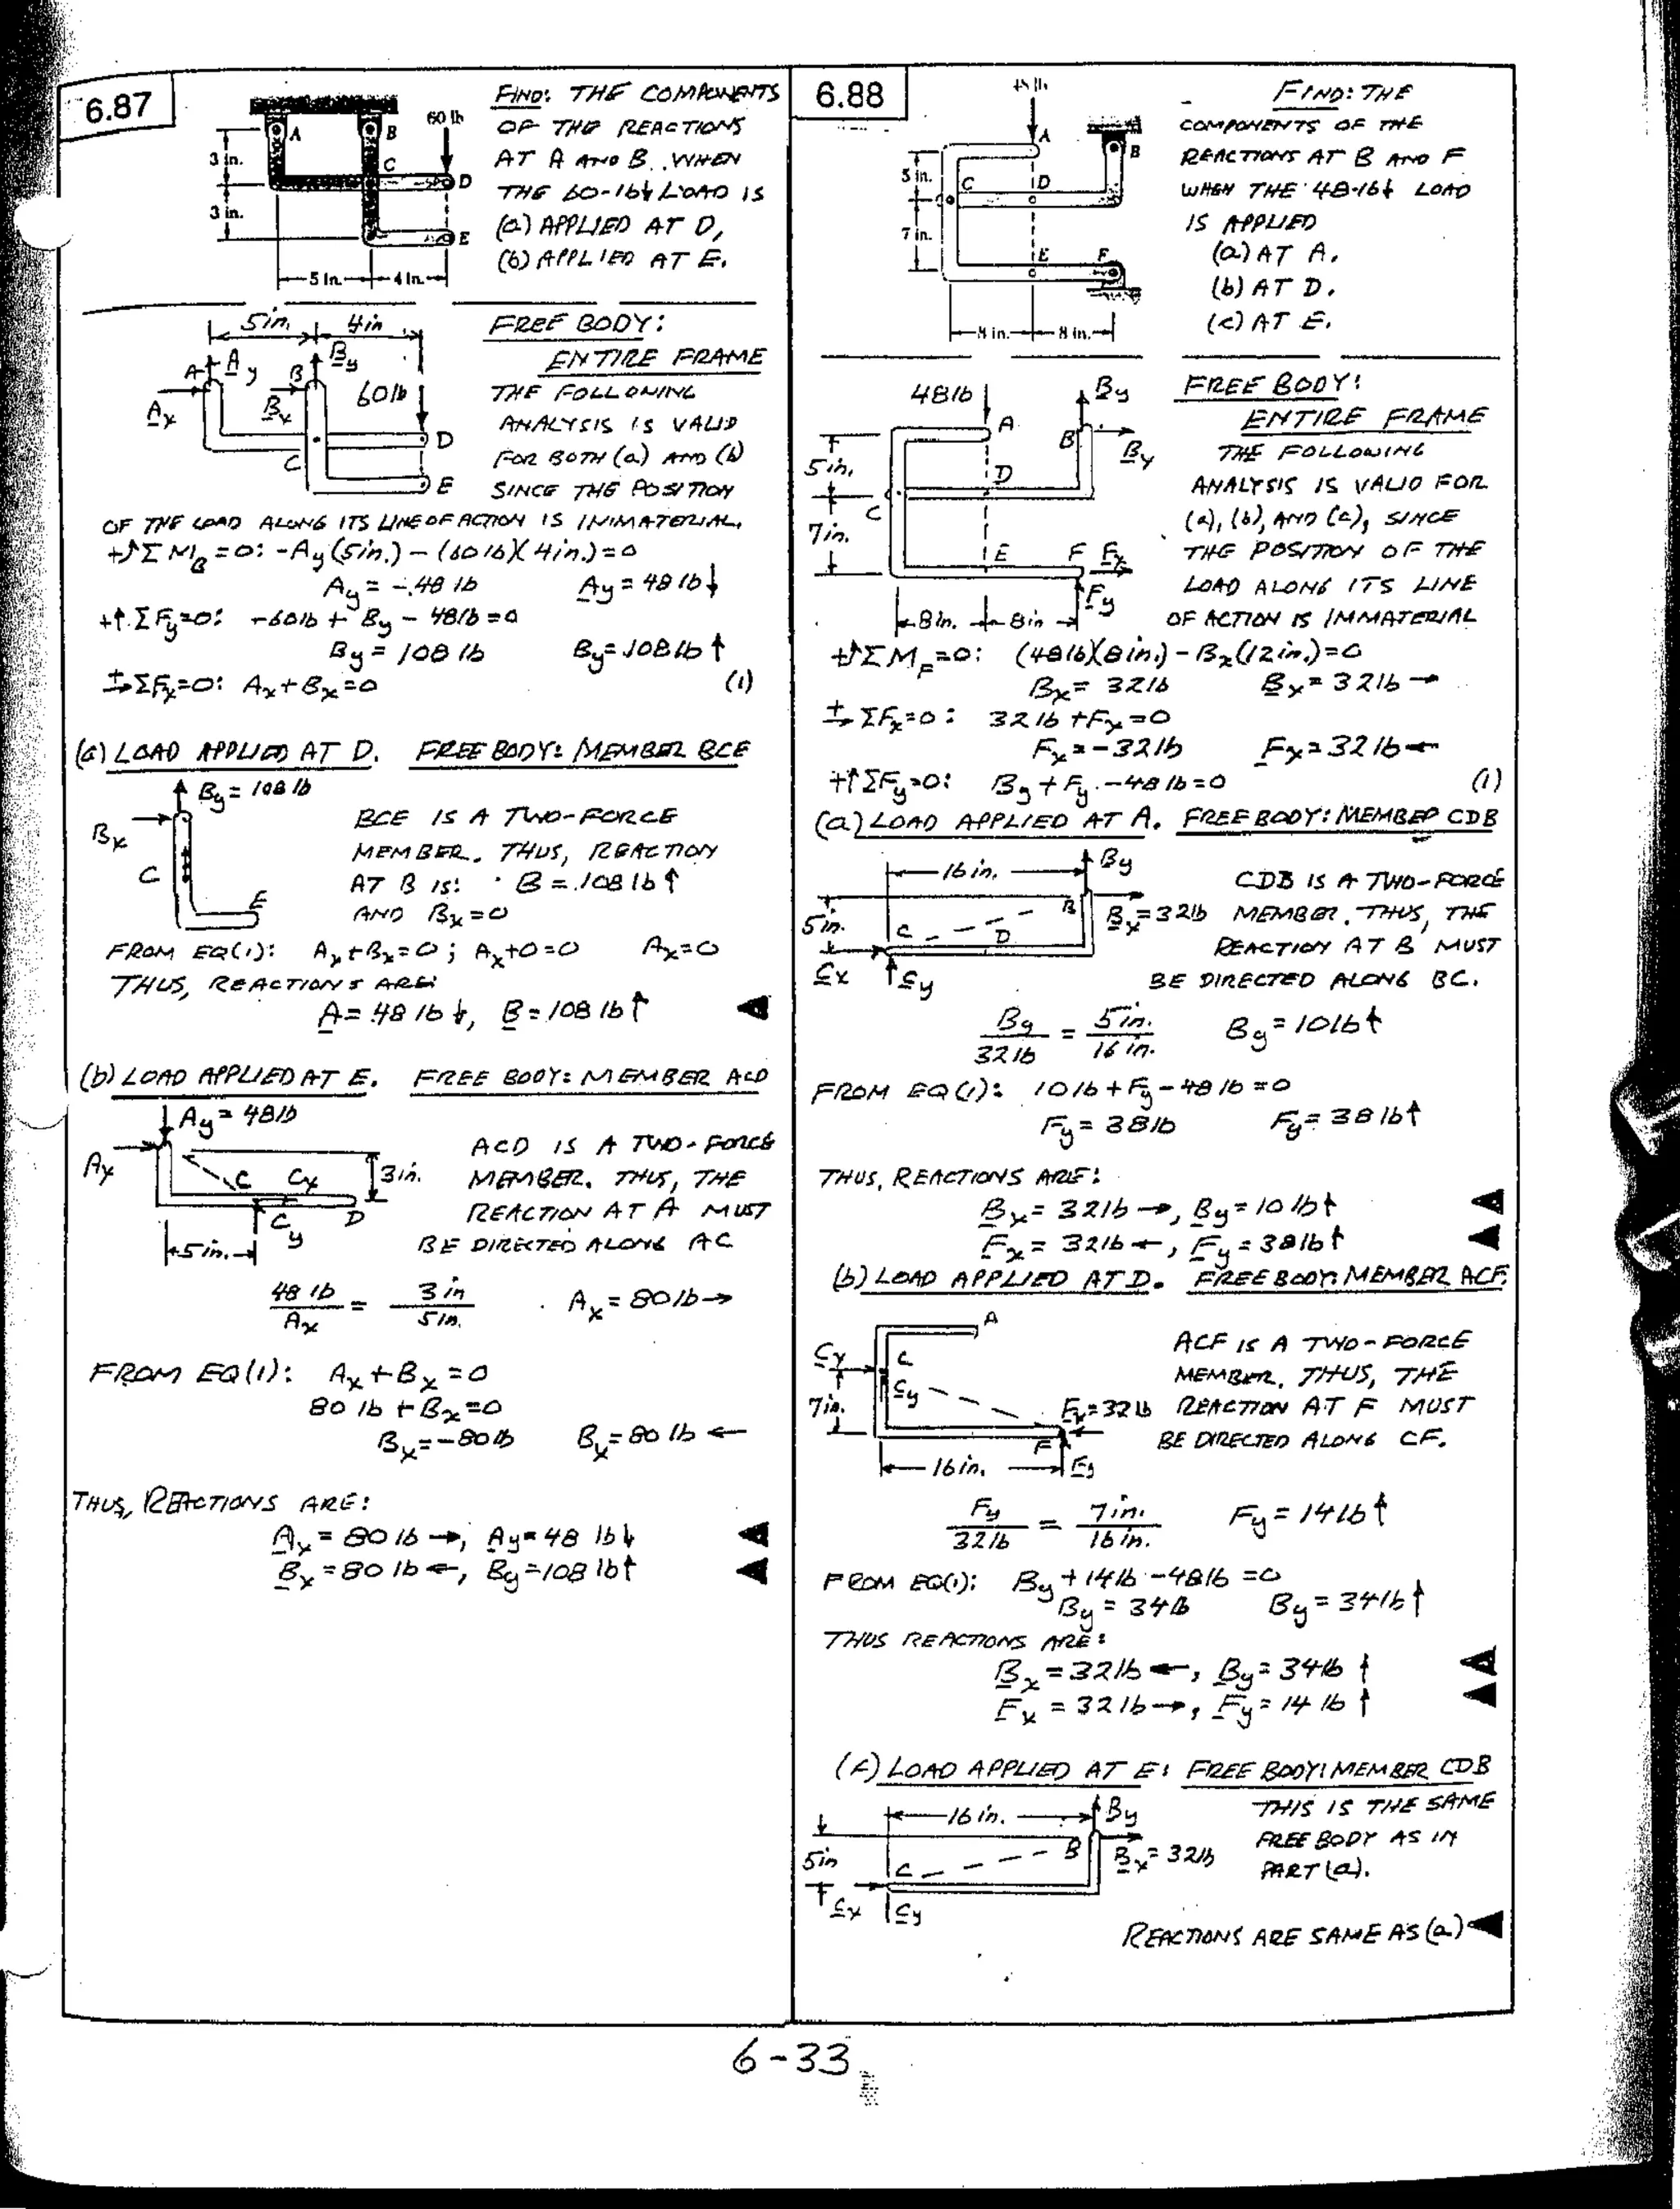 6.87
3 in.
3 in.
5 in.
4 in.
60 lb
A
B
C
D
E
FIND: THE COMPONENTS
OF THE REACTIONS
AT A AND B WHEN
THE 60-lb↓ LOAD IS
(a) APPLIED AT D,
(b) APPLIED AT E.
5in.
4in
A
Ay
B
By
Ax
Bx
60lb
C
D
E
FREE BODY:
ENTIRE FRAME
THE FOLLOWING
ANALYSIS IS VALID
FOR BOTH (a) AND (b)
SINCE THE POSITION
OF THE LOAD ALONG ITS LINE OF ACTION IS IMMATERIAL.
+↺ΣM_B=0: -Ay(5in.) - (60 lb)(4in.)=0
Ay = -48 lb Ay = 48 lb↓
+↑ΣFy=0: -60lb + By - 48lb=0
By = 108 lb By=108lb↑
+→ΣFx=0: Ax+Bx=0 (1)
(a) LOAD APPLIED AT D. FREE BODY: MEMBER BCE
By = 108 lb
Bx
C
E
BCE IS A TWO-FORCE
MEMBER. THUS, REACTION
AT B IS: B = 108 lb↑
AND Bx=0
FROM EQ(1): Ax+Bx=0; Ax+0=0 Ax=0
THUS, REACTIONS ARE:
A = 48 lb↓, B = 108 lb↑
(b) LOAD APPLIED AT E. FREE BODY: MEMBER ACD
Ay = 48lb
Ax
C
Cx
3in.
Cy
D
5in.
ACD IS A TWO-FORCE
MEMBER. THUS, THE
REACTION AT A MUST
BE DIRECTED ALONG AC
48 lb / Ax = 3 in / 5in. Ax = 80lb→
FROM EQ(1): Ax+Bx=0
80 lb + Bx=0
Bx=-80lb Bx=80 lb←
THUS, REACTIONS ARE:
Ax = 80 lb→, Ay=48 lb↓
Bx=80 lb←, By=108 lb↑
6.88
48 lb
A
B
5 in.
C
D
7 in.
E
F
8 in.
8 in.
FIND: THE
COMPONENTS OF THE
REACTIONS AT B AND F
WHEN THE 48-lb↓ LOAD
IS APPLIED
(a) AT A.
(b) AT D.
(c) AT E.
48lb
By
A
B
Bx
5in.
D
C
7in.
E
F
Fx
Fy
8in.
8in
FREE BODY:
ENTIRE FRAME
THE FOLLOWING
ANALYSIS IS VALID FOR
(a), (b), AND (c), SINCE
THE POSITION OF THE
LOAD ALONG ITS LINE
OF ACTION IS IMMATERIAL
+↺ΣM_F=0: (48lb)(8in.) - Bx(12in.)=0
Bx = 32lb Bx = 32lb→
+→ΣFx=0: 32lb+Fx=0
Fx=-32lb Fx=32lb←
+↑ΣFy=0: By+Fy-48lb=0 (1)
(a) LOAD APPLIED AT A. FREE BODY: MEMBER CDB
16in.
By
5in.
B
Bx=32lb
C
D
Cx
Cy
CDB IS A TWO-FORCE
MEMBER. THUS, THE
REACTION AT B MUST
BE DIRECTED ALONG BC.
By / 32lb = 5in. / 16 in. By = 10lb↑
FROM EQ(1): 10lb+Fy-48lb=0
Fy = 38lb Fy = 38lb↑
THUS, REACTIONS ARE:
Bx = 32lb→, By=10 lb↑
Fx = 32lb←, Fy=38lb↑
(b) LOAD APPLIED AT D. FREE BODY: MEMBER ACF.
A
Cx
C
Cy
7in.
Fx=32lb
F
16in.
Fy
ACF IS A TWO-FORCE
MEMBER. THUS, THE
REACTION AT F MUST
BE DIRECTED ALONG CF.
Fy / 32lb = 7in. / 16in. Fy=14lb↑
FROM EQ(1): By+14lb-48lb=0
By = 34lb By=34lb↑
THUS REACTIONS ARE:
Bx=32lb←, By=34lb↑
Fx = 32lb→, Fy=14 lb↑
(c) LOAD APPLIED AT E: FREE BODY: MEMBER CDB
16in.
By
5in
B
Bx=32lb
C
Cx
Cy
THIS IS THE SAME
FREE BODY AS IN
PART (a).
REACTIONS ARE SAME AS (a)
6-33